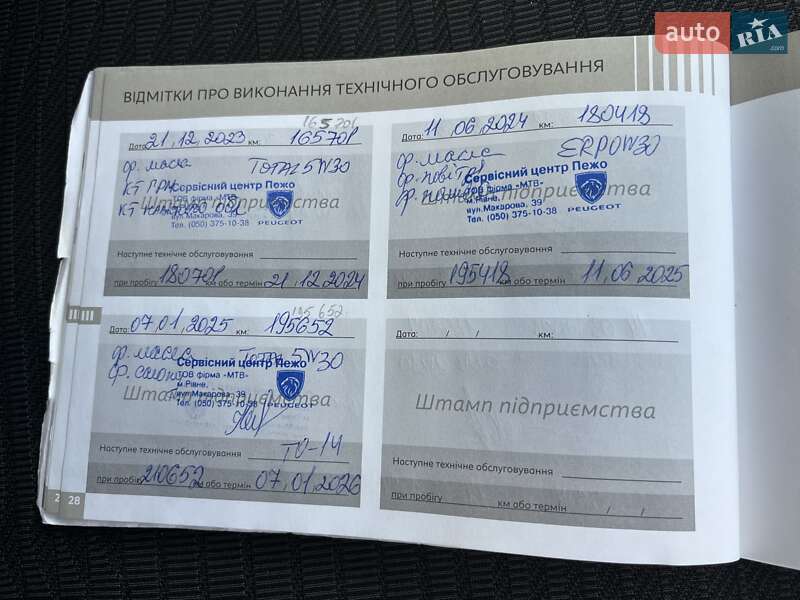 auto RIA .com
ВІДМІТКИ ПРО ВИКОНАННЯ ТЕХНІЧНОГО ОБСЛУГОВУВАННЯ
165701
Дата 21,12,2023 км: 165701
ф. масла TOTAL 5W30
Сервісний центр Пежо
ТОВ фірма «МТВ»
м.Рівне,
вул.Макарова, 39
Тел. (050) 375-10-38 PEUGEOT
Штамп підприємства
Наступне технічне обслуговування
при пробігу 180701 км або термін 21,12,2024
Дата: 11 06,2024 км: 180418
ф. масла
ф. повітр
Сервісний центр Пежо
ТОВ фірма «МТВ»
м.Рівне,
вул.Макарова, 39
Тел. (050) 375-10-38 PEUGEOT
Штамп підприємства
Наступне технічне обслуговування
при пробігу 195418 км або термін 11,06,2025
195652
Дата: 07,01,2025 км: 195652
ф. масла TOTAL 5W30
Сервісний центр Пежо
ТОВ фірма «МТВ»
м.Рівне,
вул.Макарова, 39
Тел. (050) 375-10-38 PEUGEOT
Штамп підприємства
Наступне технічне обслуговування ТО-14
при пробігу 210652 км або термін 07,01,2026
Дата: / / км:
Штамп підприємства
Наступне технічне обслуговування
при пробігу км або термін / /
2 28